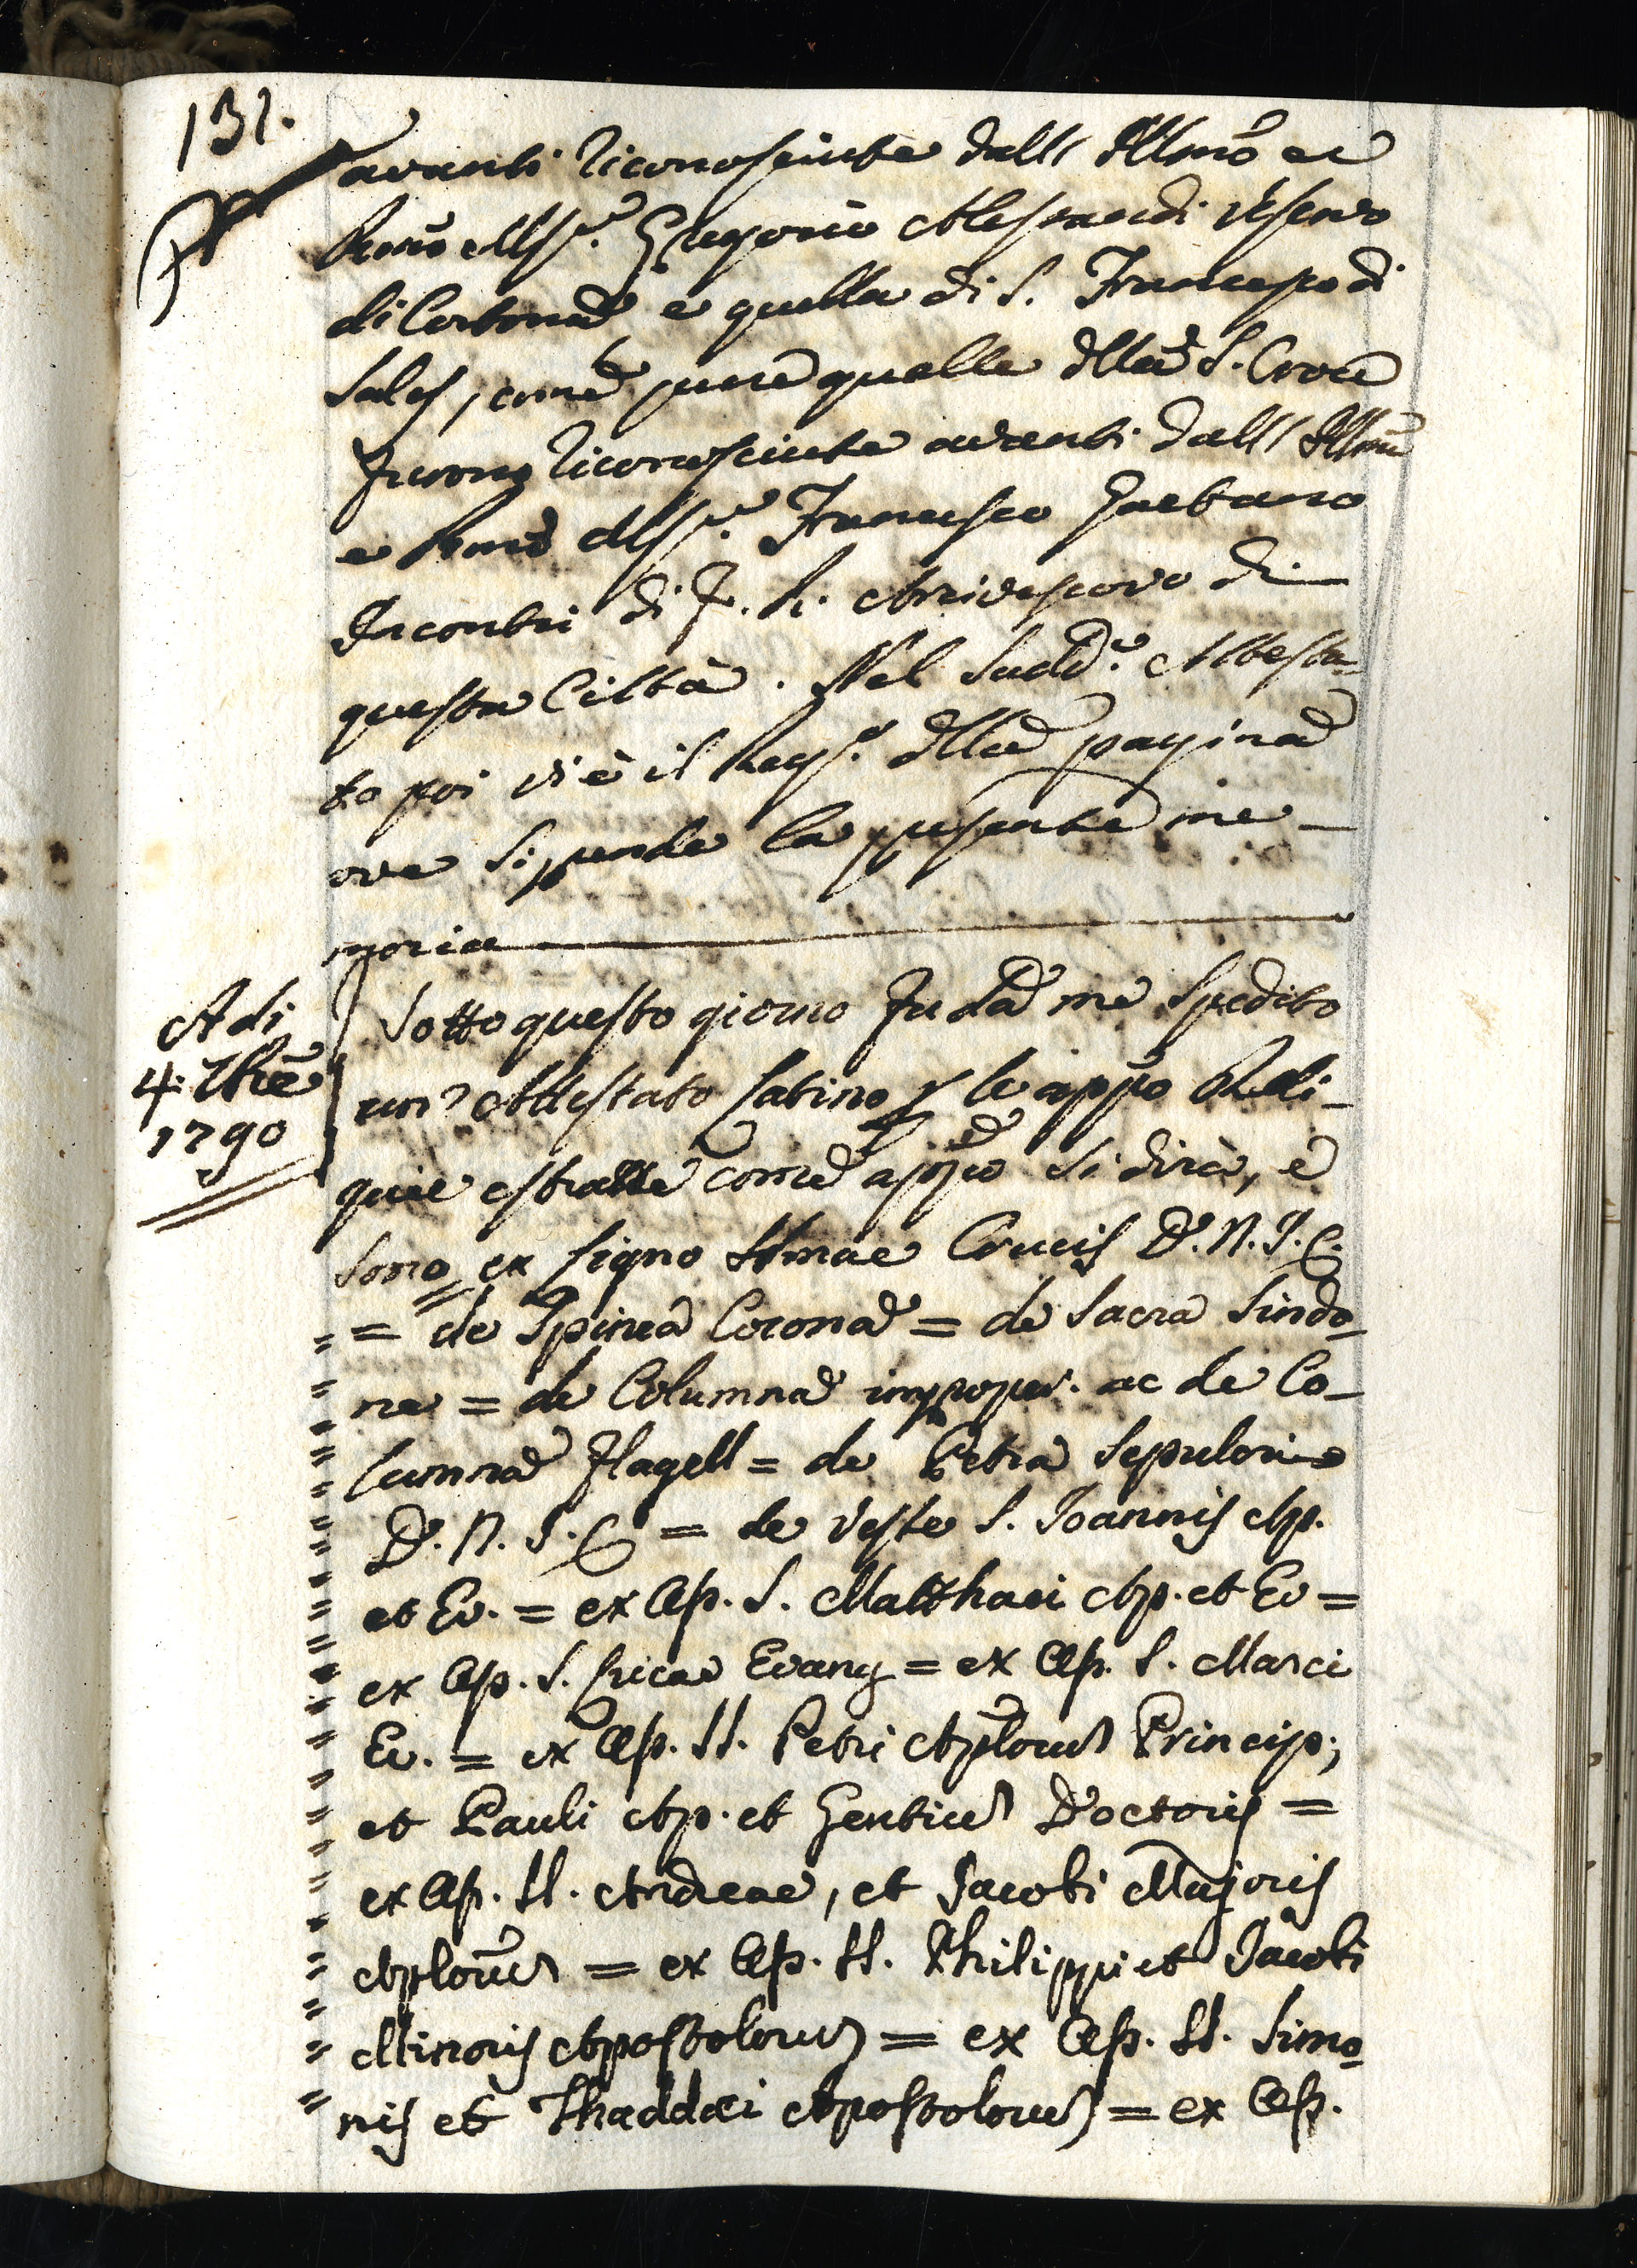 131.
avanti riconosciute dall' Illmo e
Rmo Msr. Gregorio Alessandri Vescovo
di Cortona e quella di S. Francesco di
Sales, come pure quelle della S. Croce
furono riconosciute avanti dall' Illmo
e Rmo Msr. Francesco Gaetano
Incontri di F. R. Arcivescovo di
questa Città. Nel Sudd.o Attesta=
to poi vi è il Regs.o della pagina
ove si prende la presente me-
moria
Adi
4. 7bre
1790
Sotto questo giorno fu da me Spedito
un' Attestato Latino p le appo Reli-
quie estratte come appo si dirà, e
sono = ex Ligno SSmae Crucis D. N. J. C.
= de Spinea Corona = de Sacra Sindo=
ne = de Columna improper. ac de Co-
lumna Flagell = de Petra Sepulcri
D. N. J. C = de Veste S. Joannis Ap.
et Ev. = ex Oss. S. Matthaei Ap. et Ev =
ex Oss. S. Lucae Evang = ex Oss. S. Marci
Ev. = ex Oss. SS. Petri Aplorum Princip;
et Pauli Ap. et Gentium Doctoris =
ex Oss. SS. Andreae, et Jacobi Majoris
Aplorum = ex Oss. SS. Philippi et Jacobi
Minoris Apostolorum = ex Oss. SS. Simo=
nis et Thaddaei Apostolorum = ex Oss.